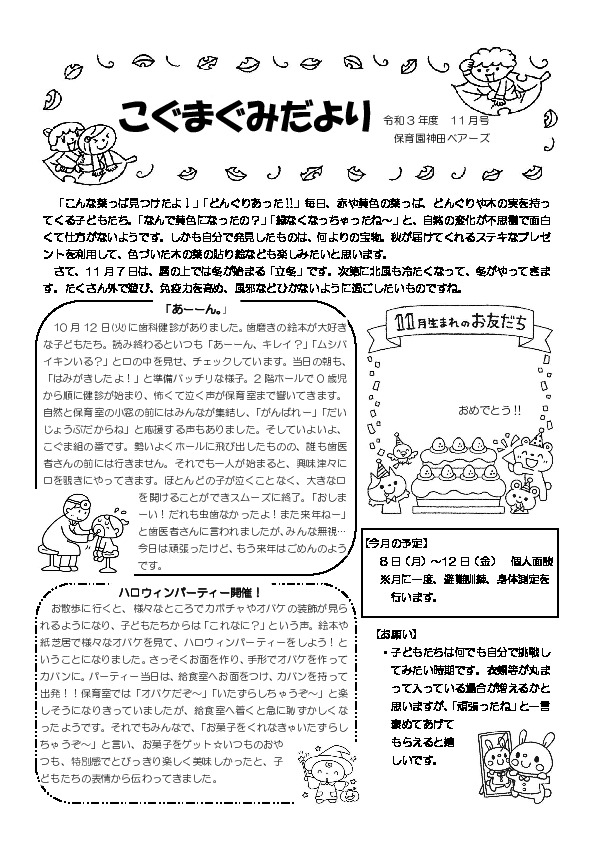 こぐまぐみだより
令和３年度　１１月号
保育園神田ベアーズ
「こんな葉っぱ見つけたよ！」「どんぐりあった！！」毎日、赤や黄色の葉っぱ、どんぐりや木の実を持っ
てくる子どもたち。「なんで黄色になったの？」「緑なくなっちゃったね～」と、自然の変化が不思議で面白
くて仕方がないようです。しかも自分で発見したものは、何よりの宝物。秋が届けてくれるステキなプレゼ
ントを利用して、色づいた木の葉の貼り絵なども楽しみたいと思います。
さて、１１月７日は、暦の上では冬が始まる「立冬」です。次第に北風も冷たくなって、冬がやってきま
す。たくさん外で遊び、免疫力を高め、風邪などひかないように過ごしたいものですね。
「あーーん。」
１０月１２日(火)に歯科健診がありました。歯磨きの絵本が大好き
な子どもたち。読み終わるといつも「あーーん、キレイ？」「ムシバ
イキンいる？」と口の中を見せ、チェックしています。当日の朝も、
「はみがきしたよ！」と準備バッチリな様子。２階ホールで０歳児
から順に健診が始まり、怖くて泣く声が保育室まで響いてきます。
自然と保育室の小窓の前にはみんなが集結し、「がんばれー」「だい
じょうぶだからね」と応援する声もありました。そしていよいよ、
こぐま組の番です。勢いよくホールに飛び出したものの、誰も歯医
者さんの前には行きません。それでも一人が始まると、興味津々に
口を覗きにやってきます。ほとんどの子が泣くことなく、大きな口
を開けることができスムーズに終了。「おしま
ーい！だれも虫歯なかったよ！また来年ねー」
と歯医者さんに言われましたが、みんな無視…
今日は頑張ったけど、もう来年はごめんのよう
です。
１１月生まれのお友だち
おめでとう！！
【今月の予定】
８日（月）～１２日（金）　個人面談
※月に一度、避難訓練、身体測定を
行います。
ハロウィンパーティー開催！
お散歩に行くと、様々なところでカボチャやオバケの装飾が見ら
れるようになり、子どもたちからは「これなに？」という声。絵本や
紙芝居で様々なオバケを見て、ハロウィンパーティーをしよう！と
いうことになりました。さっそくお面を作り、手形でオバケを作って
カバンに。パーティー当日は、給食室へお面をつけ、カバンを持って
出発！！保育室では「オバケだぞ～」「いたずらしちゃうぞ～」と楽
しそうになりきっていましたが、給食室へ着くと急に恥ずかしくな
ったようです。それでもみんなで、「お菓子をくれなきゃいたずらし
ちゃうぞ～」と言い、お菓子をゲット☆いつものおや
つも、特別感でとびっきり楽しく美味しかったと、子
どもたちの表情から伝わってきました。
【お願い】
・子どもたちは何でも自分で挑戦し
てみたい時期です。衣類等が丸ま
って入っている場合が増えるかと
思いますが、「頑張ったね」と一言
褒めてあげて
もらえると嬉
しいです。